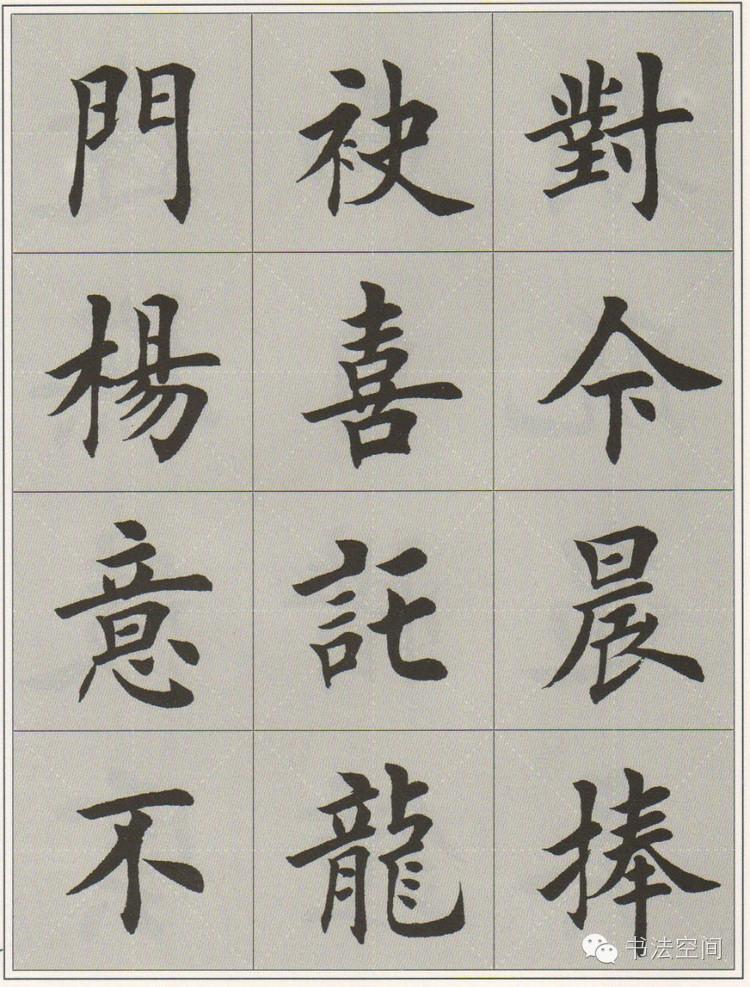 對今晨捧
袂喜託龍
門楊意不
书法空间